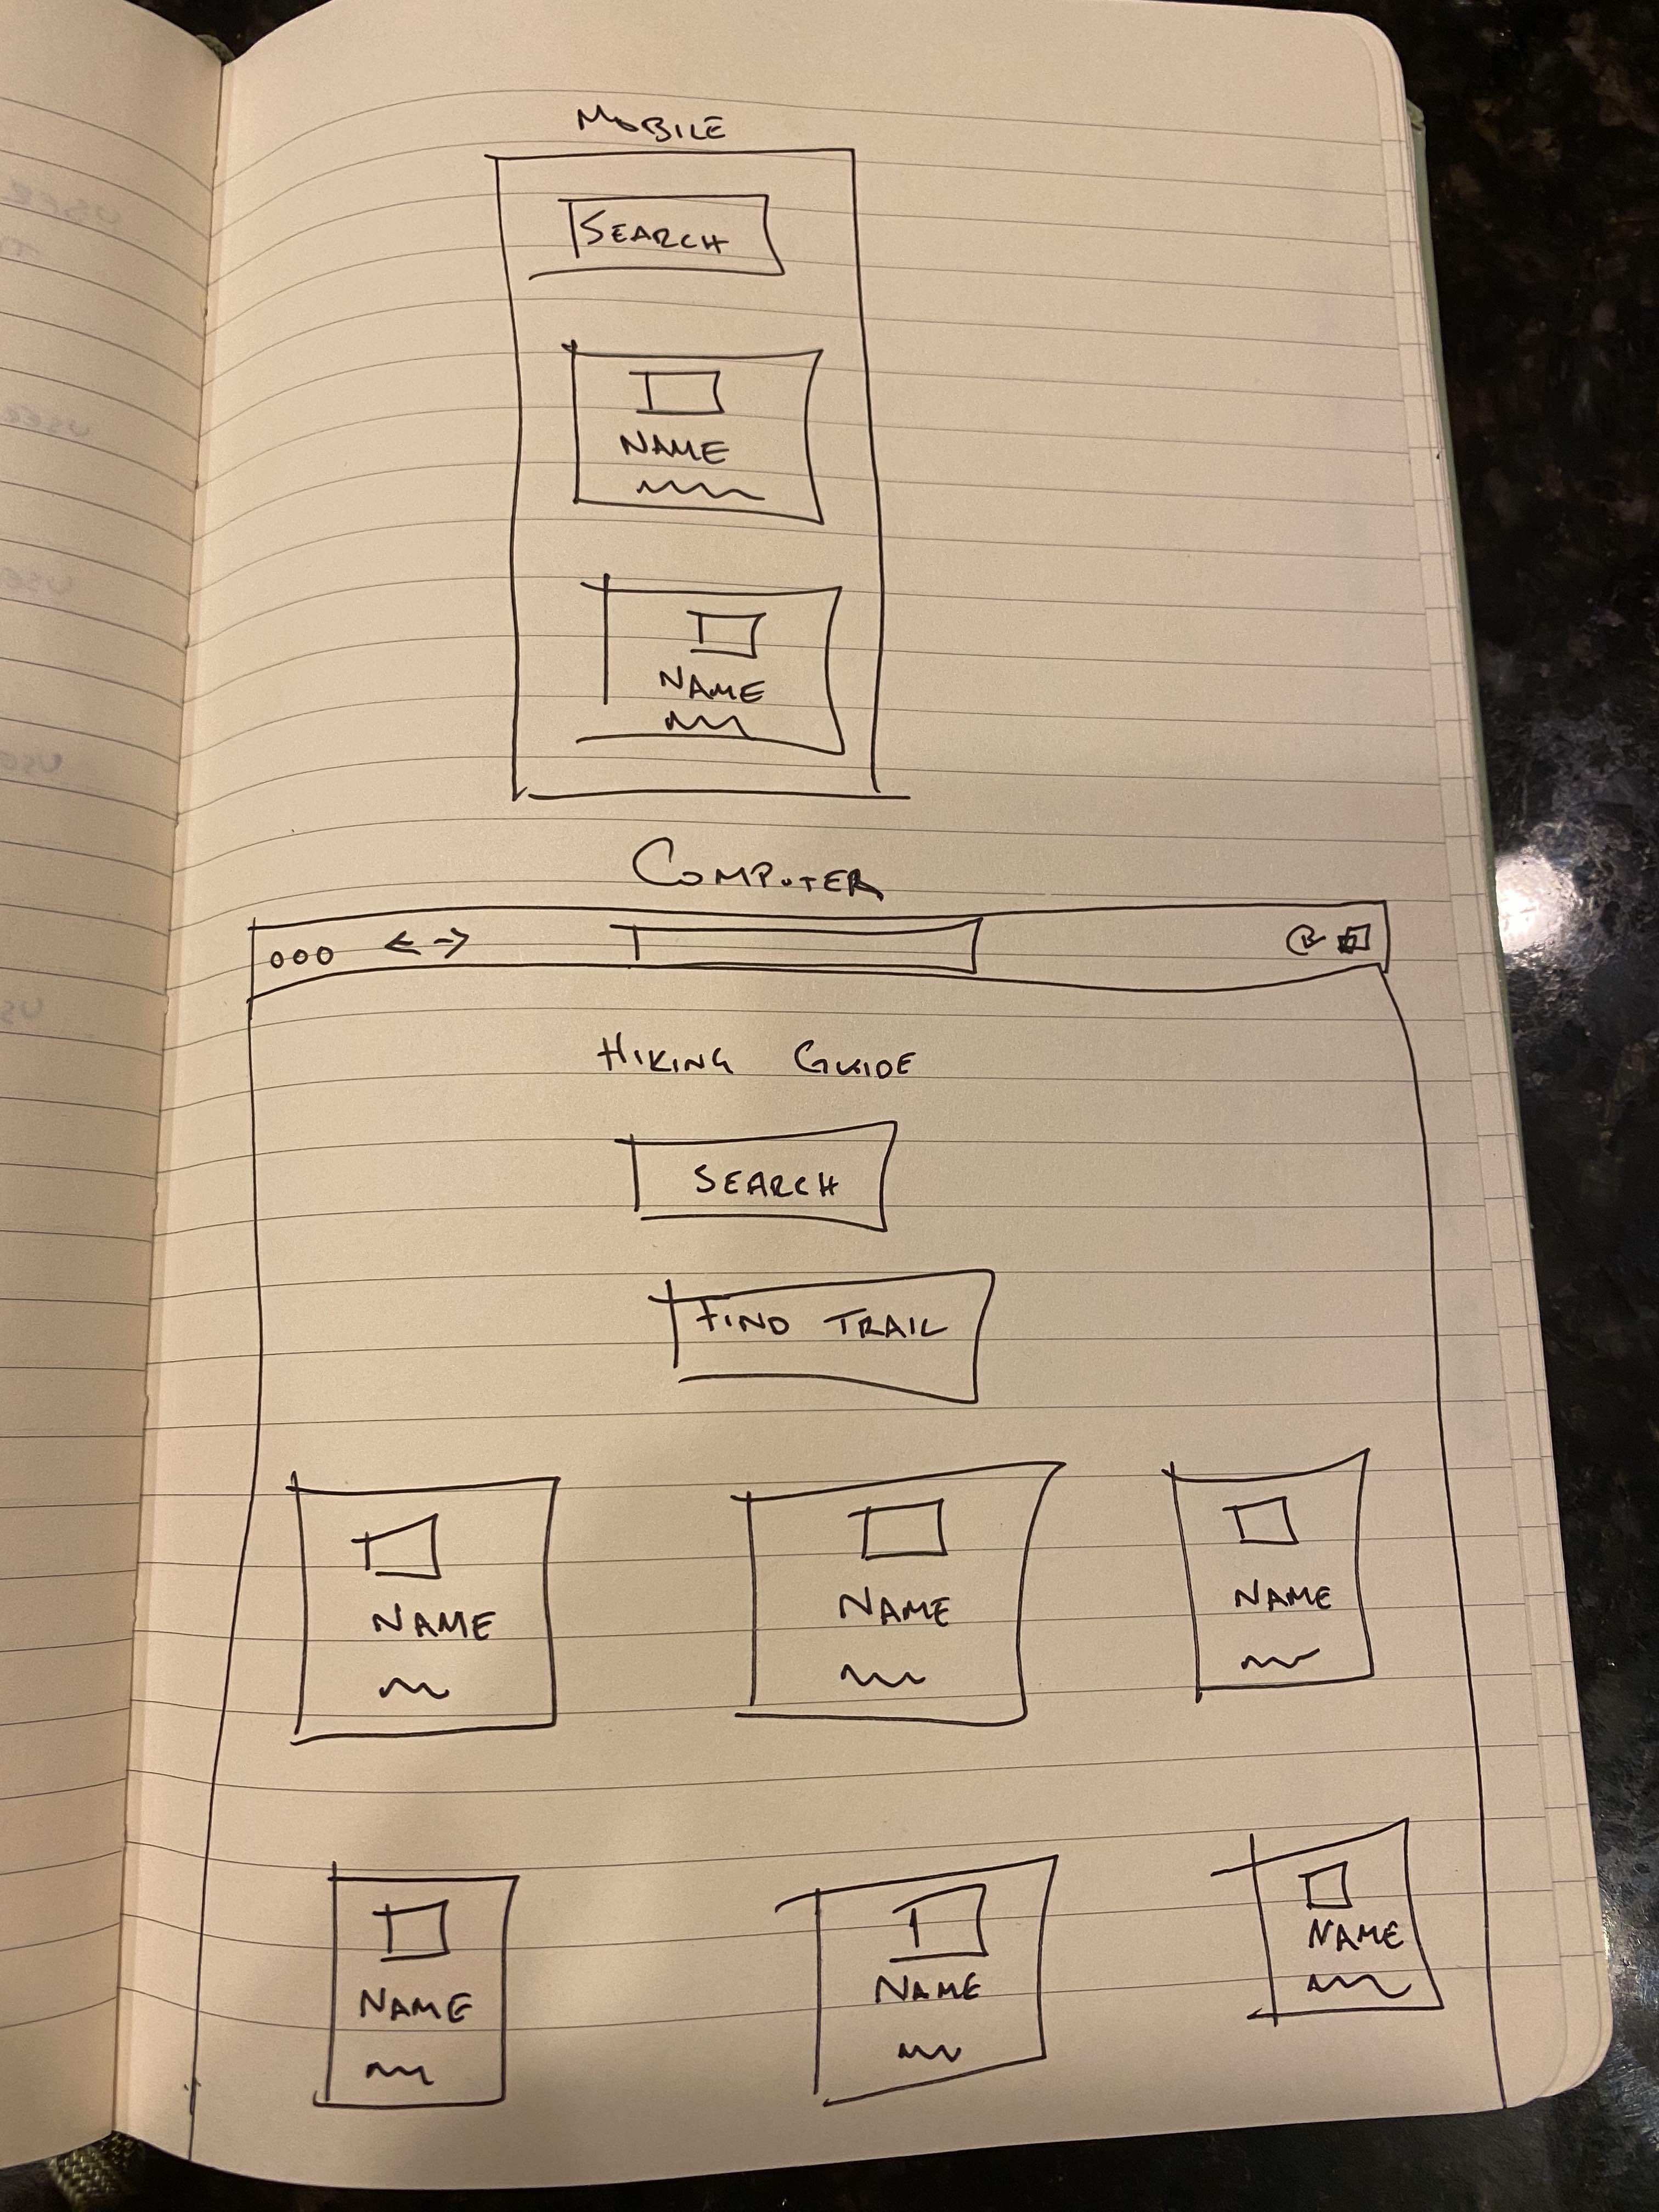 MOBILE
SEARCH
NAME
NAME
COMPUTER
HIKING GUIDE
SEARCH
FIND TRAIL
NAME NAME NAME
NAME NAME NAME